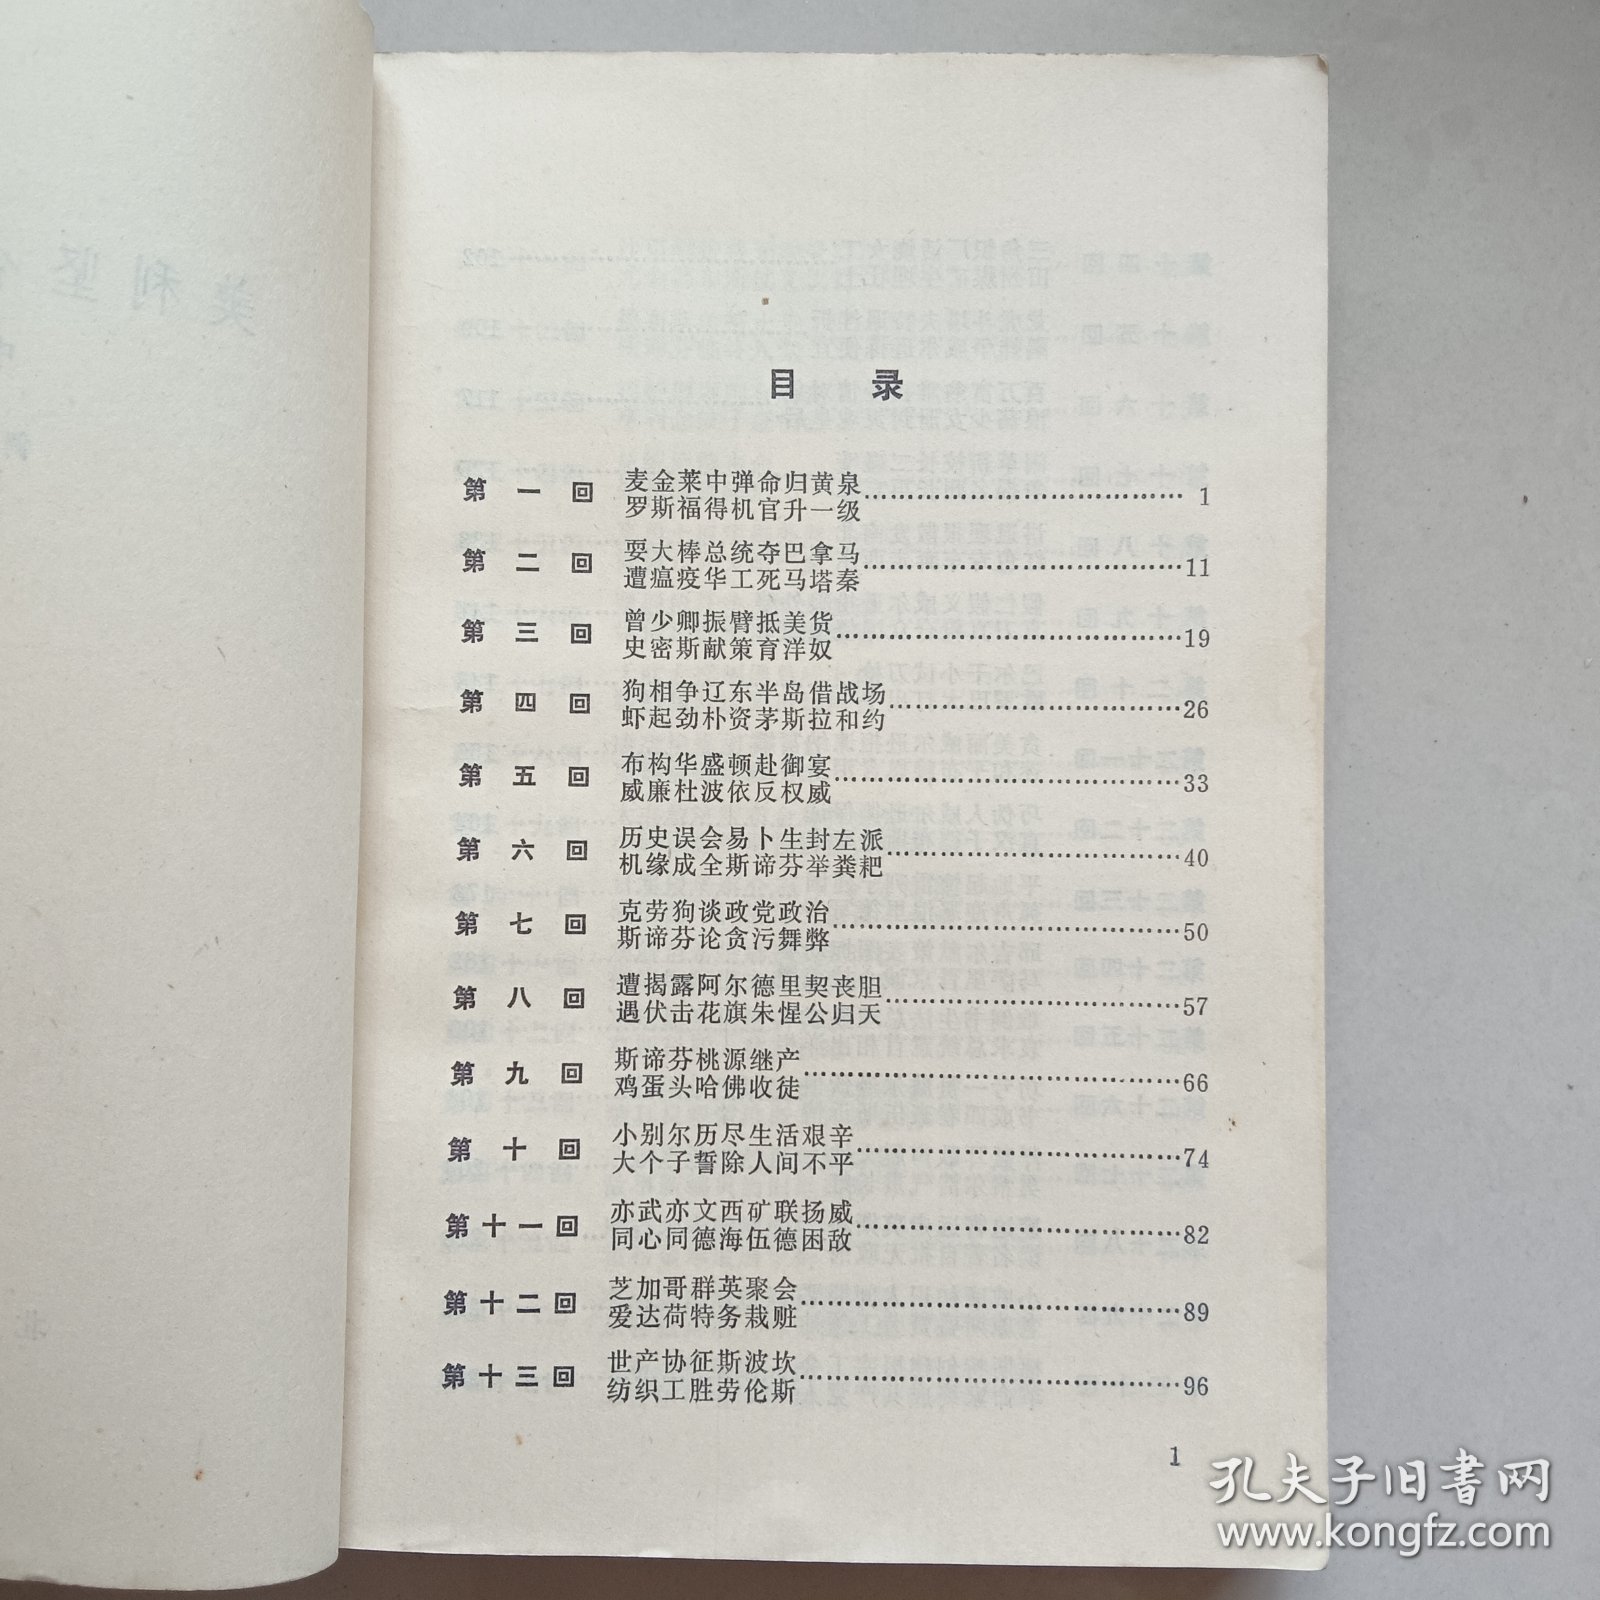 美利坚
目 录
第一回 麦金莱中弹命归黄泉
罗斯福得机官升一级 1
第二回 耍大棒总统夺巴拿马
遭瘟疫华工死马塔秦 11
第三回 曾少卿振臂抵美货
史密斯献策育洋奴 19
第四回 狗相争辽东半岛借战场
虾起劲朴资茅斯拉和约 26
第五回 布构华盛顿赴御宴
威廉杜波依反权威 33
第六回 历史误会易卜生封左派
机缘成全斯谛芬举粪耙 40
第七回 克劳狗谈政党政治
斯谛芬论贪污舞弊 50
第八回 遭揭露阿尔德里契丧胆
遇伏击花旗朱惺公归天 57
第九回 斯谛芬桃源继产
鸡蛋头哈佛收徒 66
第十回 小别尔历尽生活艰辛
大个子誓除人间不平 74
第十一回 亦武亦文西矿联扬威
同心同德海伍德困敌 82
第十二回 芝加哥群英聚会
爱达荷特务栽赃 89
第十三回 世产协征斯波坎
纺织工胜劳伦斯 96
1
孔夫子旧书网
www.kongfz.com